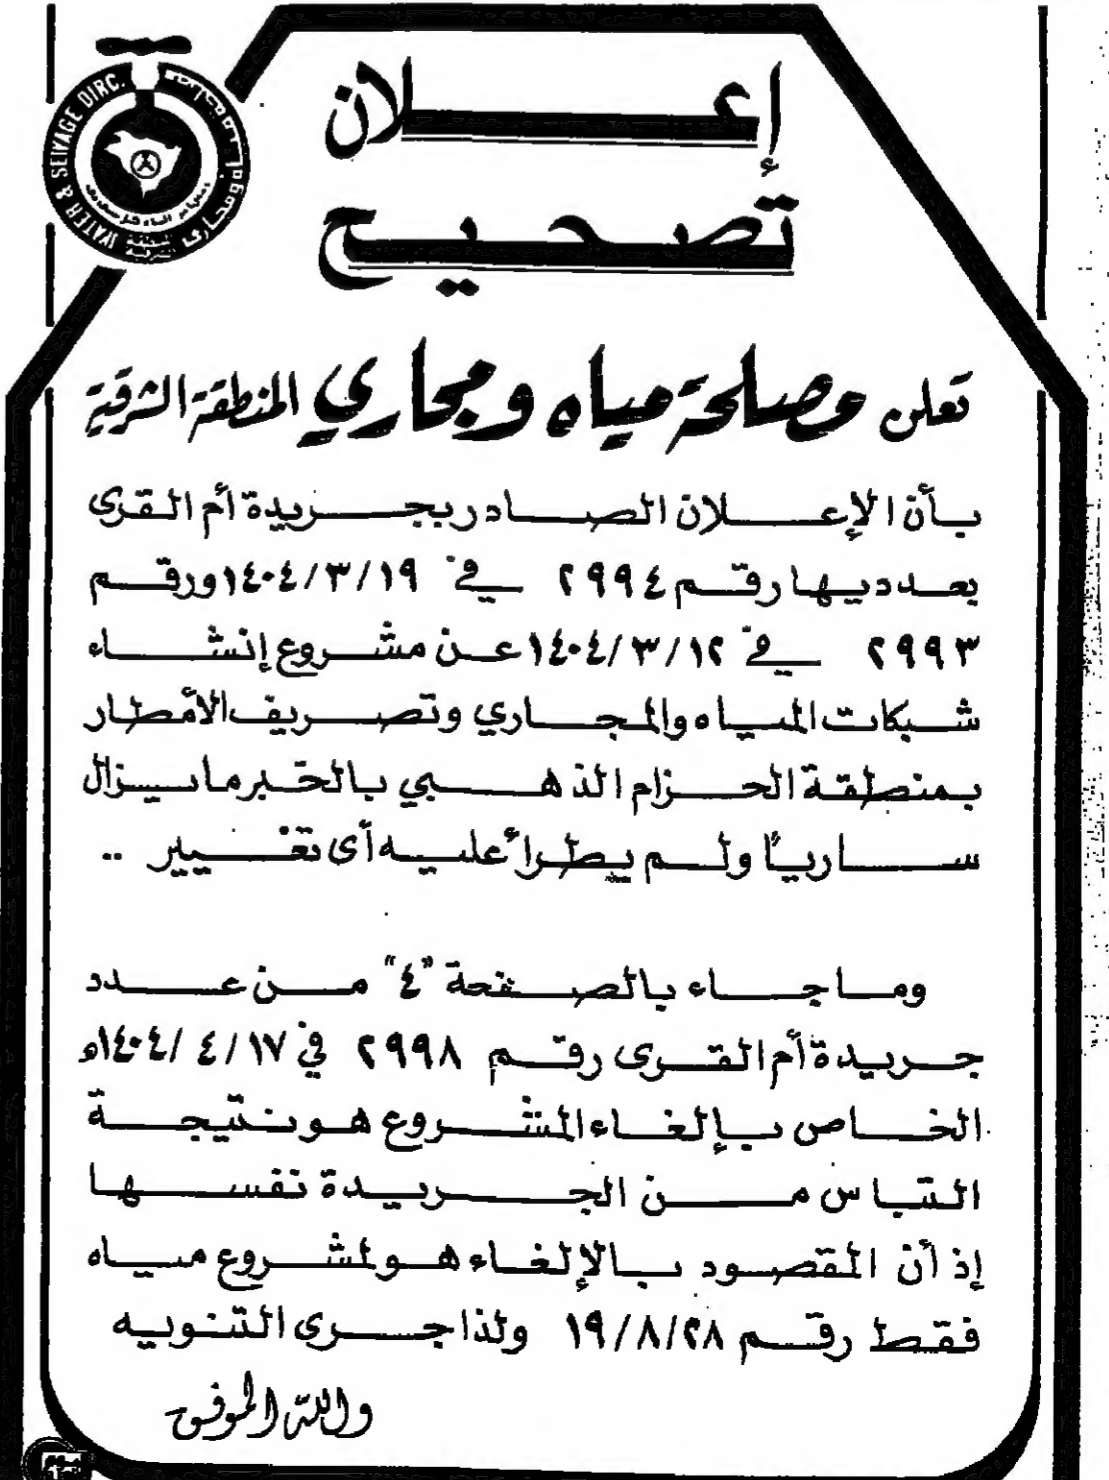 WATER & SEWAGE DIRC.
إعلان
تصحيح
تعلن مصلحة مياه ومجاري المنطقة الشرقية
بأن الإعلان الصادر بجريدة أم القرى
بعدديها رقم ٢٩٩٤ في ١٤٠٤/٣/١٩ ورقم
٢٩٩٣ في ١٤٠٤/٣/١٢ عن مشروع إنشاء
شبكات المياه والمجاري وتصريف الأمطار
بمنطقة الحزام الذهبي بالخبر ما يزال
ساريًا ولم يطرأ عليه أى تغيير ..
وما جاء بالصفحة "٤" من عدد
جريدة أم القرى رقم ٢٩٩٨ في ١٤٠٤/٤/١٧ه
الخاص بإلغاء المشروع هو نتيجة
التباس من الجريدة نفسها
إذ أن المقصود بالإلغاء هو لمشروع مياه
فقط رقم ١٩/٨/٢٨ ولذا جرى التنويه
والله الموفق